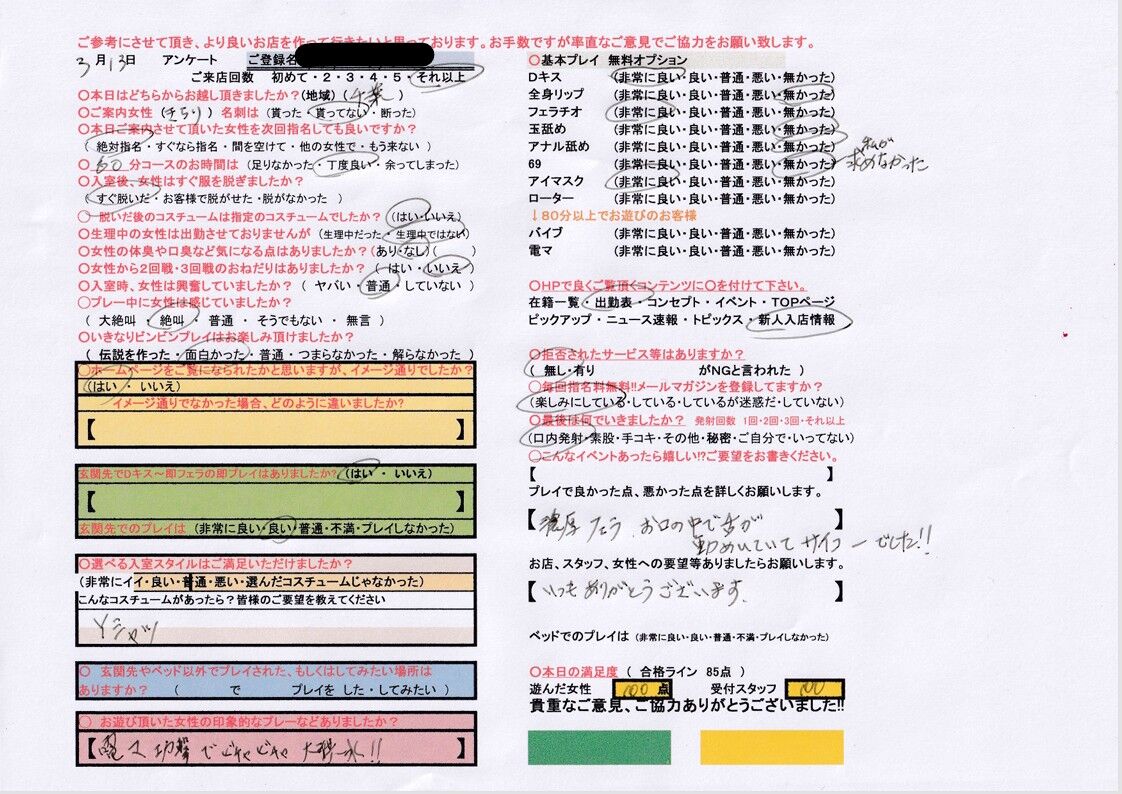 ご参考にさせて頂き、より良いお店を作って行きたいと思っております。お手数ですが率直なご意見でご協力をお願い致します。
3月13日 アンケート ご登録名
ご来店回数 初めて・2・3・4・5・それ以上
〇本日はどちらからお越し頂きましたか?(地域) ( 千葉 )
〇ご案内女性 ( ) 名刺は (貰った・貰ってない・断った)
〇本日ご案内させて頂いた女性を次回指名しても良いですか?
( 絶対指名・すぐなら指名・間を空けて・他の女性で・もう来ない )
〇 60 分コースのお時間は (足りなかった・丁度良い・余ってしまった)
〇入室後、女性はすぐ服を脱ぎましたか?
( すぐ脱いだ・お客様で脱がせた・脱がなかった )
〇 脱いだ後のコスチュームは指定のコスチュームでしたか? (はい・いいえ)
〇生理中の女性は出勤させておりませんが (生理中だった・生理中ではない)
〇女性の体臭や口臭など気になる点はありましたか?(あり・なし)( )
〇女性から2回戦・3回戦のおねだりはありましたか? ( はい・いいえ )
〇入室時、女性は興奮していましたか? ( ヤバい・普通・していない )
〇プレー中に女性は感じていましたか?
( 大絶叫 ・ 絶叫 ・ 普通 ・ そうでもない ・ 無言 )
〇いきなりビンビンプレイはお楽しみ頂けましたか?
( 伝説を作った・面白かった・普通・つまらなかった・解らなかった )
〇ホームページをご覧になられたかと思いますが、イメージ通りでしたか?
(はい ・ いいえ)
イメージ通りでなかった場合、どのように違いましたか?
【 】
玄関先でDキス〜即フェラの即プレイはありましたか? (はい ・ いいえ)
【 】
玄関先でのプレイは (非常に良い・良い・普通・不満・プレイしなかった)
〇選べる入室スタイルはご満足いただけましたか?
(非常にイイ・良い・普通・悪い・選んだコスチュームじゃなかった)
こんなコスチュームがあったら?皆様のご要望を教えてください
Yシャツ
〇 玄関先やベッド以外でプレイされた、もしくはしてみたい場所は
ありますか? ( で プレイを した・してみたい )
〇 お遊び頂いた女性の印象的なプレーなどありましたか?
【電マ攻撃でビチャビチャ 大洪水!! 】
〇基本プレイ 無料オプション
Dキス (非常に良い・良い・普通・悪い・無かった)
全身リップ (非常に良い・良い・普通・悪い・無かった)
フェラチオ (非常に良い・良い・普通・悪い・無かった)
玉舐め (非常に良い・良い・普通・悪い・無かった)
アナル舐め (非常に良い・良い・普通・悪い・無かった)
69 (非常に良い・良い・普通・悪い・無かった) 私が求めなかった
アイマスク (非常に良い・良い・普通・悪い・無かった)
ローター (非常に良い・良い・普通・悪い・無かった)
↓80分以上でお遊びのお客様
バイブ (非常に良い・良い・普通・悪い・無かった)
電マ (非常に良い・良い・普通・悪い・無かった)
〇HPで良くご覧頂くコンテンツに〇を付けて下さい。
在籍一覧・出勤表・コンセプト・イベント・TOPページ
ピックアップ・ニュース速報・トピックス・新人入店情報
〇拒否されたサービス等はありますか?
( 無し・有り がNGと言われた )
〇毎回指名料無料!!メールマガジンを登録してますか?
(楽しみにしている・している・しているが迷惑だ・していない)
〇最後は何でいきましたか? 発射回数 1回・2回・3回・それ以上
(口内発射・素股・手コキ・その他・秘密・ご自分で・いってない)
〇こんなイベントあったら嬉しい!?ご要望をお書きください。
【 】
プレイで良かった点、悪かった点を詳しくお願いします。
【 濃厚フェラ お口の中で舌が 】
動めいていてサイコーでした!!
お店、スタッフ、女性への要望等ありましたらお願いします。
【 いつもありがとうございます。 】
ベッドでのプレイは (非常に良い・良い・普通・不満・プレイしなかった)
〇本日の満足度 ( 合格ライン 85点 )
遊んだ女性 100 点 受付スタッフ 100
貴重なご意見、ご協力ありがとうございました!!